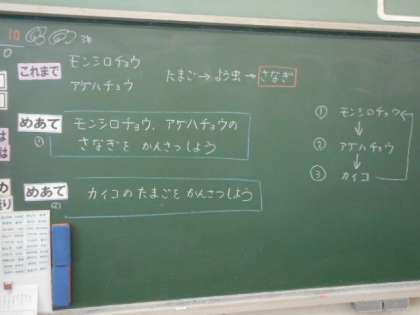 これまで
モンシロチョウ
アゲハチョウ
たまご→よう虫→さなぎ
めあて
①
モンシロチョウ、アゲハチョウの
さなぎを かんさつしよう
めあて
②
カイコのたまごをかんさつしよう
① モンシロチョウ
↓
② アゲハチョウ
↓
③ カイコ